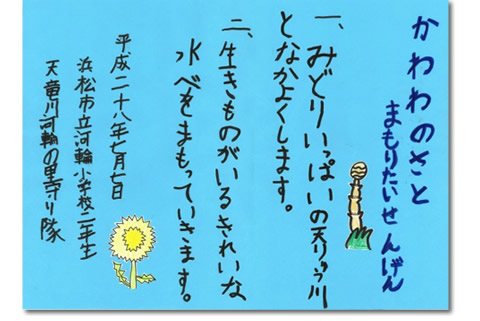 かわわのさと
まもりたいせんげん
一、みどりいっぱいの天りゅう川
となかよくします。
二、生きものがいるきれいな
水べをまもっていきます。
平成二十八年七月七日
浜松市立河輪小学校二年生
天竜川河輪の里守り隊